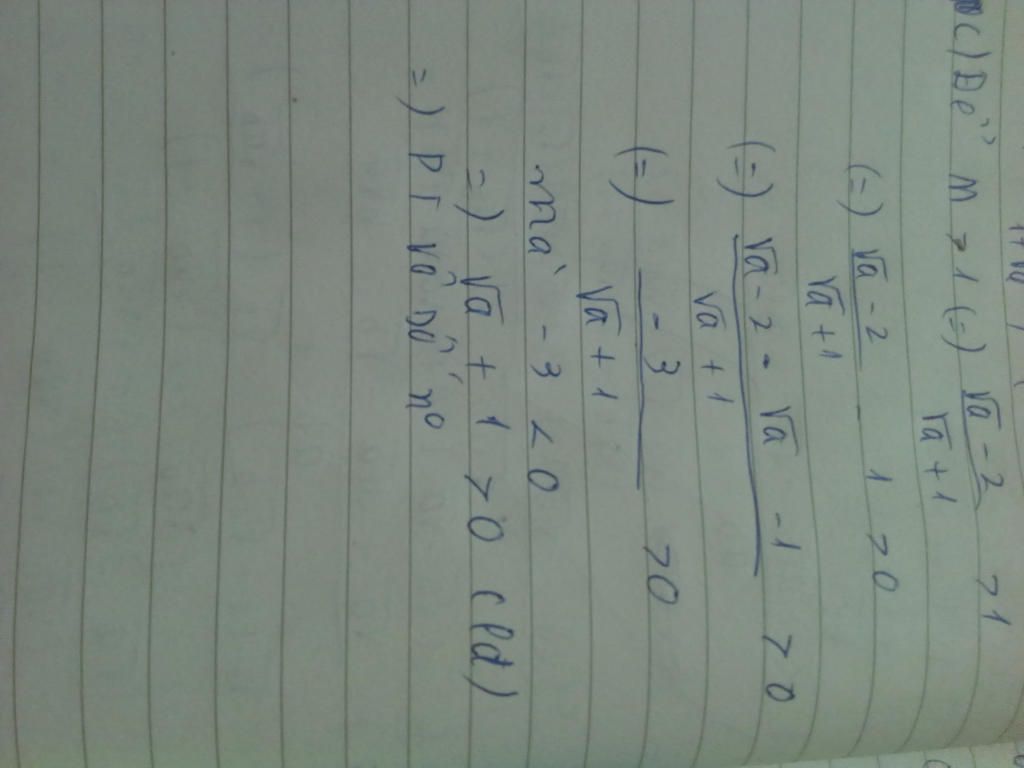 c) Để M > 1 (=) (√a - 2)/(√a + 1) > 1
(=) (√a - 2)/(√a + 1) - 1 > 0
(=) (√a - 2 - √a - 1)/(√a + 1) > 0
(=) (-3)/(√a + 1) > 0
mà -3 < 0
=) √a + 1 > 0 (lđ)
=) PT vô số n⁰